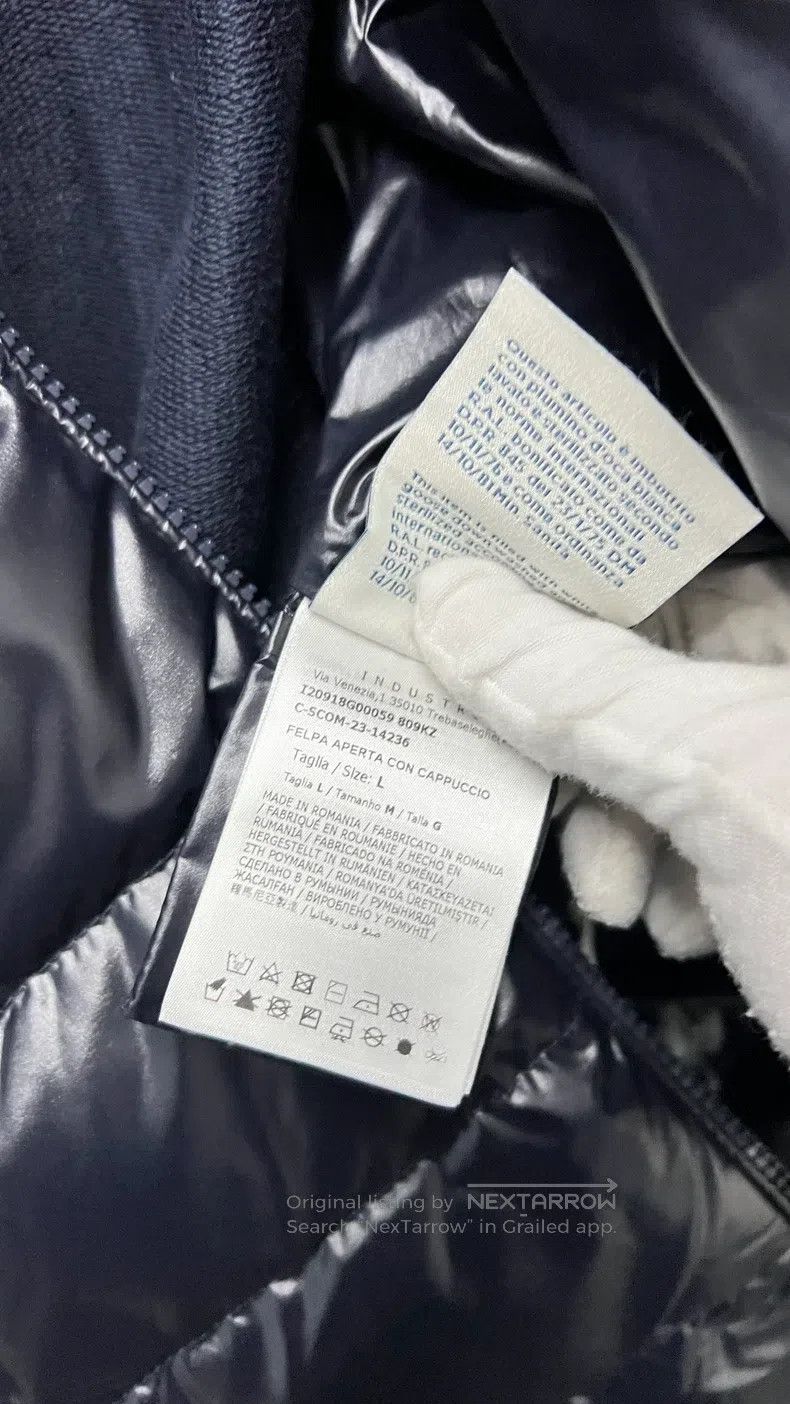 Questo articolo è imbottito
con piumino d'oca bianca
lavato e sterilizzato secondo
le norme internazionali
R.A.L. bonificato come da
D.P.R. 845 del 23/7/75 DM
10/11/76 e come Ordinanza
14/10/81 Min. Sanità
This item is filled with white
goose down
sterilized according
internation
R.A.L. rec
D.P.R.
10/11
14/10/8
INDUSTR
Via Venezia,1 35010 Trebaseleghe
I20918G00059 809KZ
C-SCOM-23-14236
FELPA APERTA CON CAPPUCCIO
Taglia / Size: L
Taglia L / Tamanho M / Talla G
MADE IN ROMANIA / FABBRICATO IN ROMANIA
/ FABRIQUÉ EN ROUMANIE / HECHO EN
RUMANIA / FABRICADO NA ROMÉNIA /
HERGESTELLT IN RUMÄNIEN / ΚΑΤΑΣΚΕΥΑΖΕΤΑΙ
ΣΤΗ ΡΟΥΜΑΝΙΑ / ROMANYA'DA ÜRETİLMİŞTİR /
СДЕЛАНО В РУМЫНИИ / РУМЫНИЯДА
ЖАСАЛҒАН / ВИРОБЛЕНО У РУМУНІЇ /
羅馬尼亞製造 / صنع في رومانيا
Original listing by NEXTARROW
Search "NexTarrow" in Grailed app.